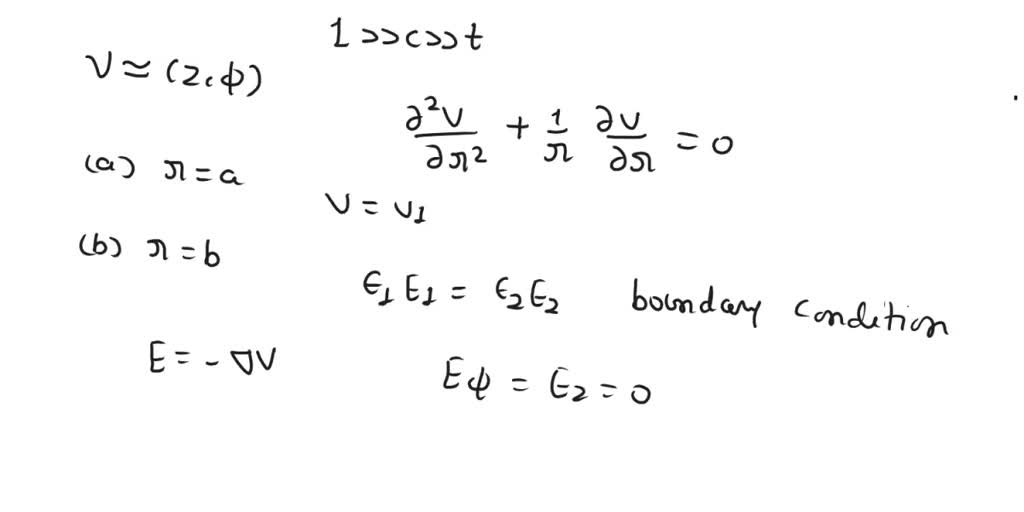 1 >> c >> t
V ≃ (z, φ)
∂²V/∂r² + 1/r ∂V/∂r = 0
(a) r = a
V = V1
(b) r = b
ϵ1 E1 = ϵ2 E2 boundary condition
E = - ∇V
Eφ = E2 = 0